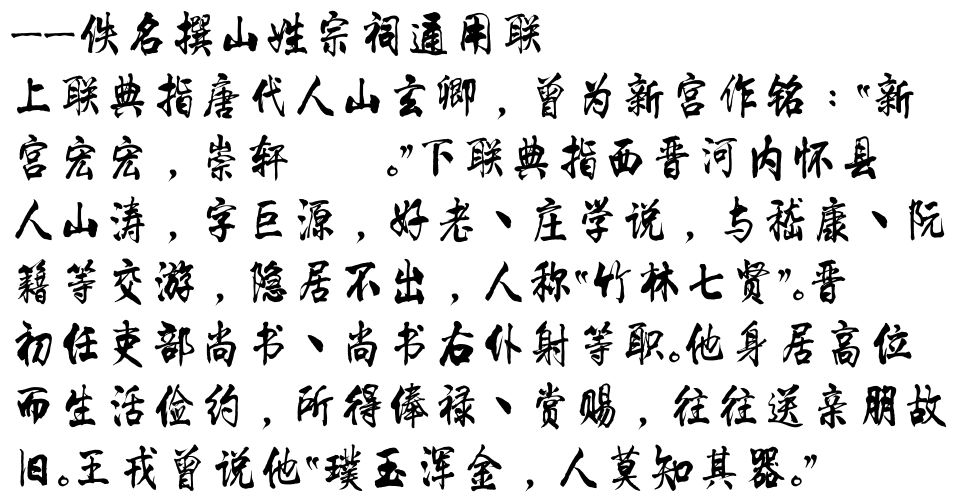 ——佚名撰山姓宗祠通用联
上联典指唐代人山玄卿，曾为新宫作铭：“新
宫宏宏，崇轩　　。”下联典指西晋河内怀县
人山涛，字巨源，好老、庄学说，与嵇康、阮
籍等交游，隐居不出，人称“竹林七贤”。晋
初任吏部尚书、尚书右仆射等职。他身居高位
而生活俭约，所得俸禄、赏赐，往往送亲朋故
旧。王戎曾说他“璞玉浑金，人莫知其器。”